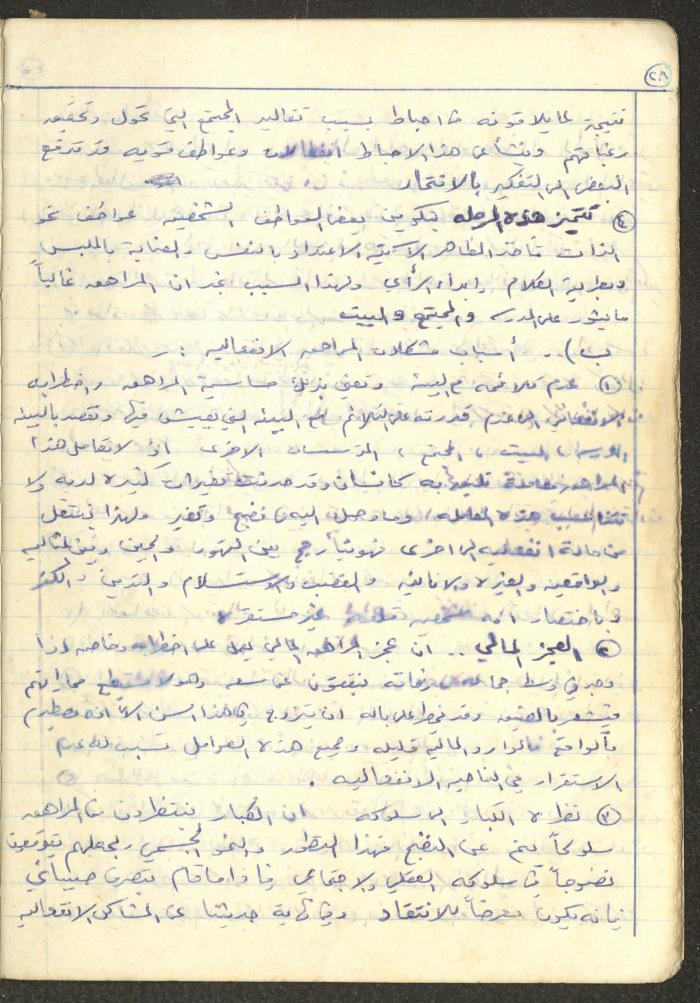 ٢٨
نتيجة لما يلاقونه من احباط بسبب تقاليد المجتمع التي تحول وتحقيق
رغباتهم وينشأ عن هذا الاحباط انفعالات وعواطف قويه قد تدفع
البعض الى التفكير بالانتحار
٤ تتميز هذه المرحله بتكوين بعض العواطف الشخصيه عواطف نحو
الذات تأخذ المظاهر الآتية الاعتداد بالنفس والعنايه بالملبس
وبطريقة الكلام وابداء الرأي ولهذا السبب نجد ان المراهق غالباً
ما يثور على المدرسه والمجتمع والبيت
ب) .. أسباب مشكلات المراهق الانفعاليه :
١ عدم تلائمه مع البيئه وتعني بذلك حساسية المراهق واضطرابه
الانفعالي الى عدم قدرته على التلائم مع البيئه التي يعيش فيها ونقصد بالبيئه
المدرسه، البيت، المجتمع، المؤسسات الاخرى اذ لا يتعامل هذا
المراهق معاملة تليق به كانسان وقد حدثت تغيرات كثيره لديه ولا
تتناسب هذه المعامله وما وصل اليه من نضج وتغير ولهذا ينتقل
من حالة انفعاليه الى اخرى فهو يتأرجح بين التهور والجبن وبين المثاليه
والواقعيه والغيره والانانيه والغضب والاستسلام والتدين والكفر
وباختصار انه غير مستقر
٢ العجز المالي .. ان عجز المراهق المالي يعمل على اضطرابه وخاصه اذا
وجد في وسط جماعه من رفاقه ينفقون عن سعه وهو لا يستطيع مجاراتهم
فيشعر بالضيق وقد يخطر على باله ان يتزوج في هذا السن الا انه يصطدم
بالواقع فالموارد الماليه قليله وجميع هذه العوامل تسبب له عدم
الاستقرار في الناحيه الانفعاليه .
٣ نظرة الكبار الى سلوكه ان الكبار ينتظرون من المراهق
سلوكاً ينم عن النضج فهذا التطور والنمو الجسمي يجعلهم يتوقعون
نضوجاً في سلوكه العقلي والاجتماعي فاذا ما قام بتصرف صبياني
فانه يكون معرضاً للانتقاد وفي نهاية حديثنا عن المشاكل الانفعاليه